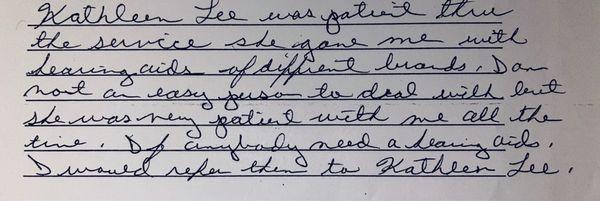 Kathleen Lee was patient thru
the service she gave me with
hearing aids of diffrent brands. I am
not an easy person to deal with but
she was very patient with me all the
time. If anybody need a hearing aids.
I would refer them to Kathleen Lee.